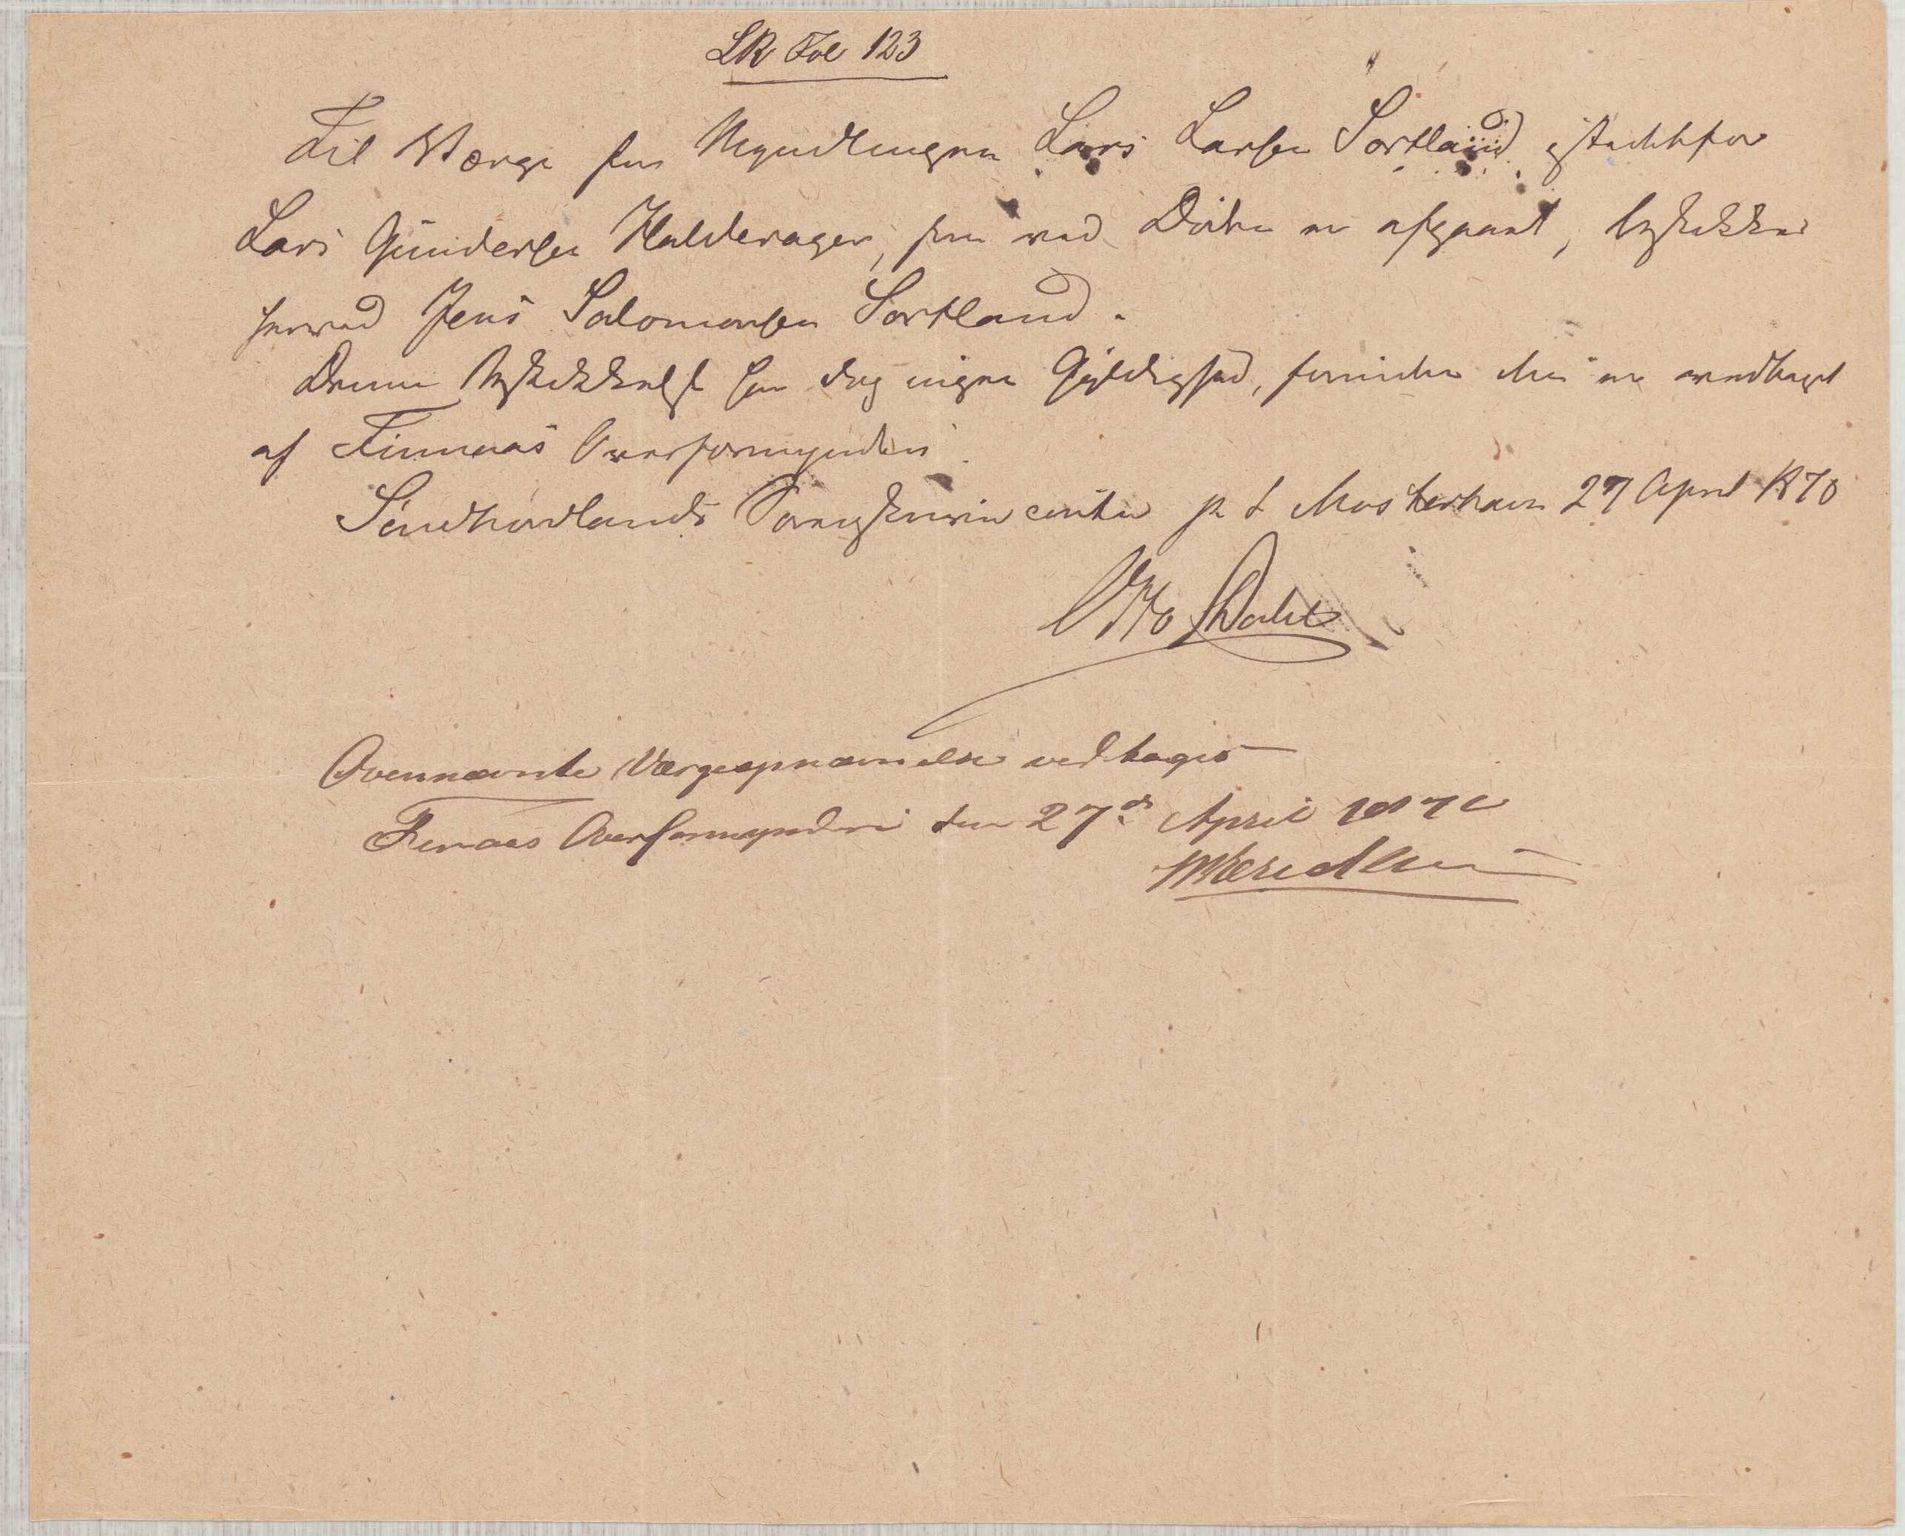 LR Fol 123
Til Værge for Myndlingen Lars Larsen Sortland istedetfor
Lars Gundersen Halderager, som ved Døden er afgaaet, beskikkes
herved Jens Salomonsen Sortland.
Denne Beskikkelse har dog ingen Gyldighed, forinden den er vedtaget
af Finnaas Overformynderi.
Søndhordlands Sorenskrivercontor p t Mosterhavn 27 April 1870
Otto Dahl
Ovennævnte Værgeopnævnelse vedtages
Finaas Overformynderi den 27de April 1870